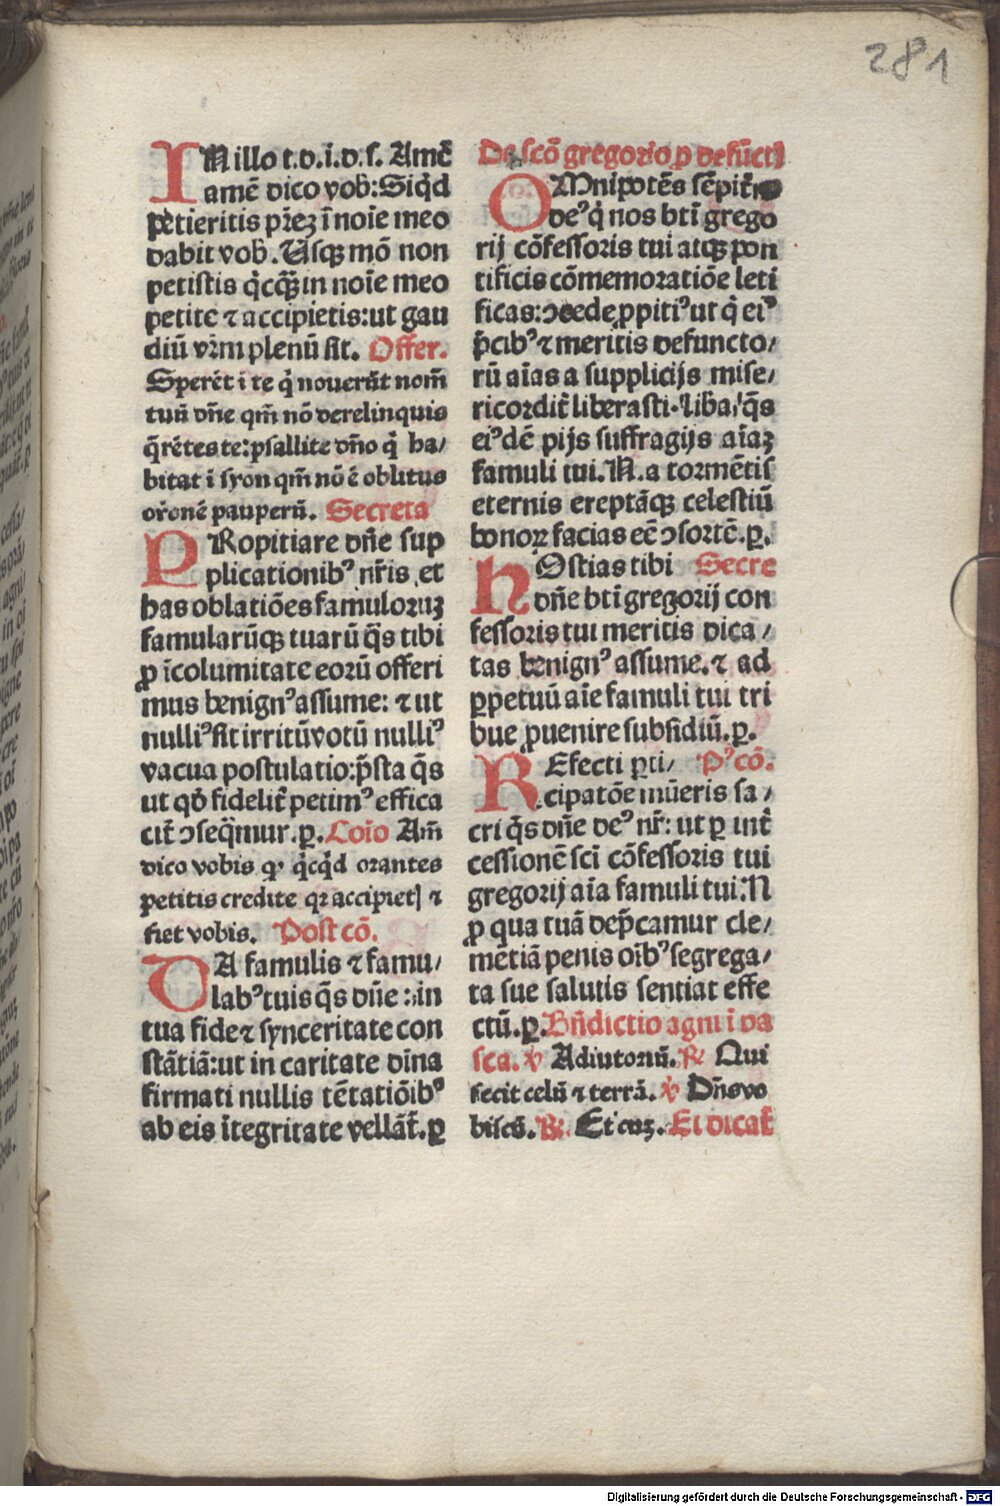 281
IN illo t.d.i.d.s. Amē
amē dico vob:Siqͥd
petieritis prēꝫ ī noīe meo
dabit vob. Usqꝫ mō non
petistis qͥcqͣꝫ in noīe meo
petite ⁊ accipietis:ut gau
diū vr̄m plenū sit. Offer.
Sperēt i te qͥ noverūt nom̄
tuū dn̄e qm̄ nō derelinquis
q̄rētes te:psallite dn̄o qͥ ha/
bitat i syon qm̄ nō ē oblitus
or̄onē pauperū. Secreta
PRopitiare dn̄e sup
plicationibꝰ nr̄is et
has oblatiōes famuloruꝫ
famularūqꝫ tuarū q̄s tibi
ꝓ īcolumitate eorū offeri
mus benignꝰ assume: ⁊ ut
nulliꝰ sit irritū votū nulliꝰ
vacua postulatio:p̄sta q̄s
ut qd̄ fidelit̄ petimꝰ effica
cit̄ ꝯseq̄mur.ꝑ. Coīo Am̄
dico vobis qꝫ qͥcqͥd orantes
petitis credite qꝛ accipietꝭ ⁊
fiet vobis. Post cō.
DA famulis ⁊ famu/
labꝰ tuis q̄s dn̄e : in
tua fide ⁊ synceritate con
stātiā:ut in caritate dīna
firmati nullis tētatiōibꝰ
ab eis ītegritate vellāt̄.ꝑ
De scō gregorio ꝓ defūctꝭ
OMnipotēs sēpit̄ne
deꝰ qͥ nos btī grego
rij cōfessoris tui atqꝫ pon
tificis cōmemoratiōe leti
ficas:ꝯcede ꝓpitiꝰ ut qͥ eiꝰ
p̄cibꝰ ⁊ meritis defuncto/
rū aīas a supplicijs mise/
ricordit̄ liberasti. liba/ q̄s
eiꝰdē pijs suffragijs aīaꝫ
famuli tui.N. a tormētis
eternis ereptāqꝫ celestiū
bonoꝝ facias eē ꝯsortē.ꝑ.
HOstias tibi Secre
dn̄e btī gregorij con
fessoris tui meritis dica/
tas benignꝰ assume. ⁊ ad
ꝑpetuū aīe famuli tui tri
bue ꝓvenire subsidiū.ꝑ.
REfecti ꝑti/ Pꝰ cō.
cipatōe mūeris sa/
cri q̄s dn̄e deꝰ nr̄: ut ꝑ int̄
cessionē scī cōfessoris tui
gregorij aīa famuli tui.N
ꝓ qua tuā dep̄camur cle/
mētiā penis oībꝰ segrega/
ta sue salutis sentiat effe
ctū.ꝑ. Bn̄dictio agni ī pa
sca. ℣ Adiutoriū. ℟ Qui
fecit celū ⁊ terrā. ℣ Dn̄s vo
biscū. ℟. Et cuꝫ. Et dicat̄
Digitalisierung gefördert durch die Deutsche Forschungsgemeinschaft - DFG